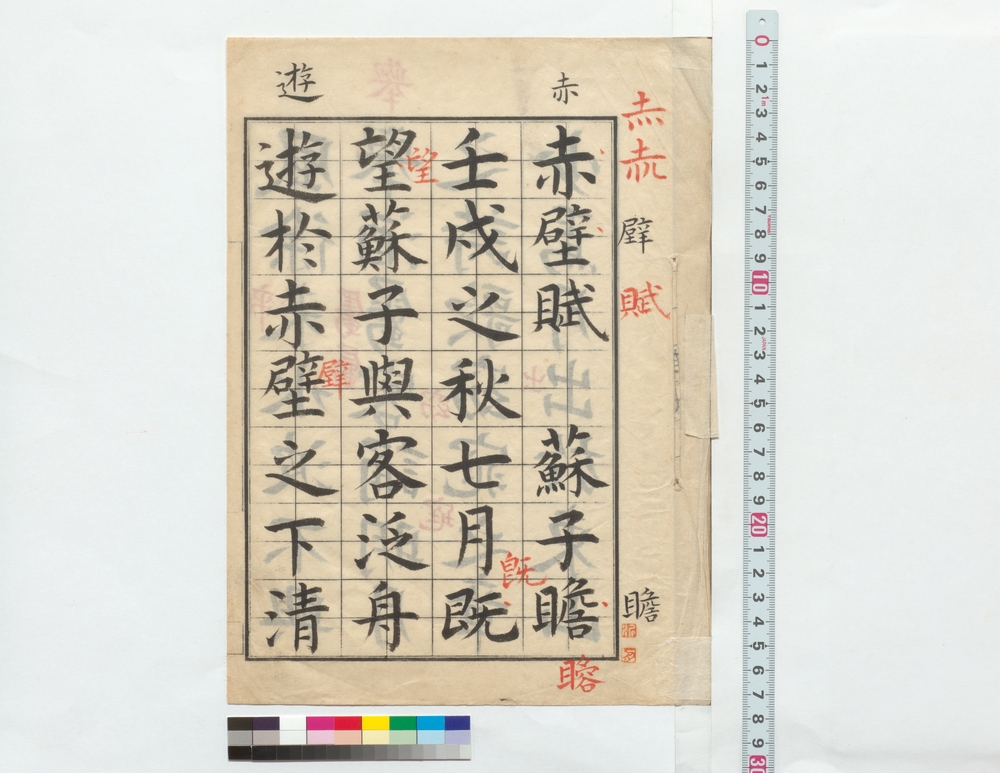 赤赤
壁
賦
瞻
瞻
赤
赤壁賦 蘇子瞻
壬戌之秋七月既
既
望蘇子與客泛舟
望
遊
遊於赤壁之下清
壁
0 1 2 3 4 5 6 7 8 9 10 1 2 3 4 5 6 7 8 9 20 1 2 3 4 5 6 7 8 9 30